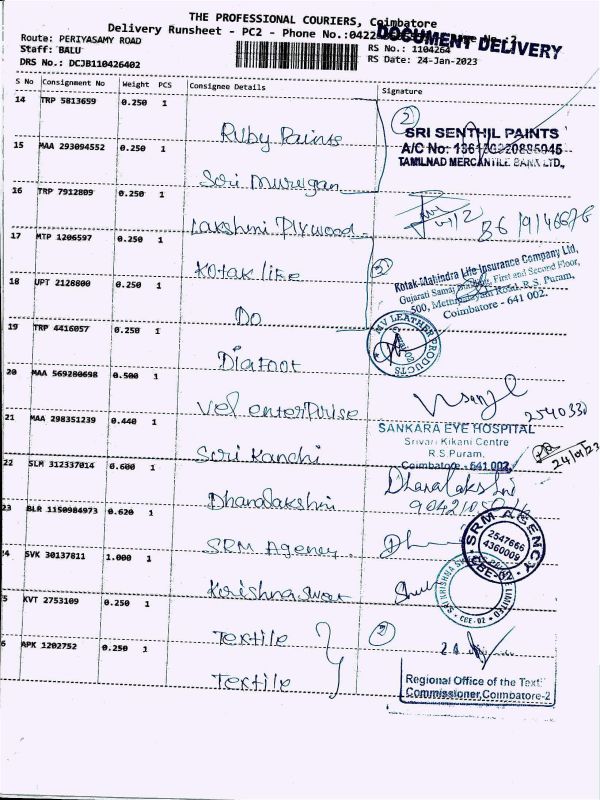 THE PROFESSIONAL COURIERS, Coimbatore
Delivery Runsheet - PC2 - Phone No.:0422 No.:2
DOCUMENT DELIVERY
Route: PERIYASAMY ROAD
RS No.: 1104264
Staff: BALU
RS Date: 24-Jan-2023
DRS No.: DCJB110426402
S No Consignment No Weight PCS Consignee Details Signature
14 TRP 5813659 0.250 1 Ruby Paints
2
SRI SENTHIL PAINTS
TAMILNAD MERCANTILE BANK LTD.,
15 MAA 293094552 0.250 1 Sri Murugan
16 TRP 7912809 0.250 1 Lakshmi Plywood
17 MTP 1206597 0.250 1 Kotak life
3
Kotak Mahindra Life Insurance Company Ltd,
Gujarati Samaj First and Second Floor,
500, Mettupalayam Road, R.S. Puram,
Coimbatore - 641 002.
18 UPT 2128800 0.250 1 Do
MV LEATHER PRODUCTS
19 TRP 4416057 0.250 1 Diafoot
20 MAA 569280698 0.500 1 Vel enterprise
2540330
21 MAA 298351239 0.440 1 Sri Kanchi
SANKARA EYE HOSPITAL
Srivari Kikani Centre
R.S.Puram,
Coimbatore - 641 002.
24/01/23
22 SLM 312337014 0.600 1 Dhanalakshmi
23 BLR 1150984973 0.620 1 SRM Agency.
SRM AGENCY
2547666
4360009
CBE-02
24 SVK 30137811 1.000 1 Krishna swar
CBE-02
5 KVT 2753109 0.250 1 Textile
2
6 APK 1202752 0.250 1 Textile
Regional Office of the Text
Commissioner, Coimbatore-2